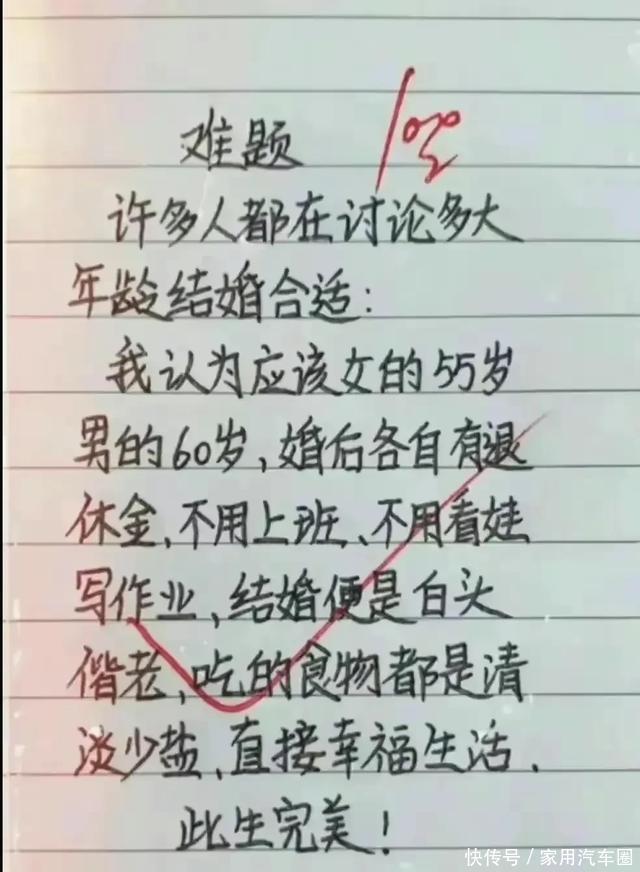 难题
100
许多人都在讨论多大
年龄结婚合适:
我认为应该女的55岁
男的60岁,婚后各自有退
休金、不用上班、不用看娃
写作业,结婚便是白头
偕老,吃的食物都是清
淡少盐,直接幸福生活.
此生完美!
快传号/家用汽车圈